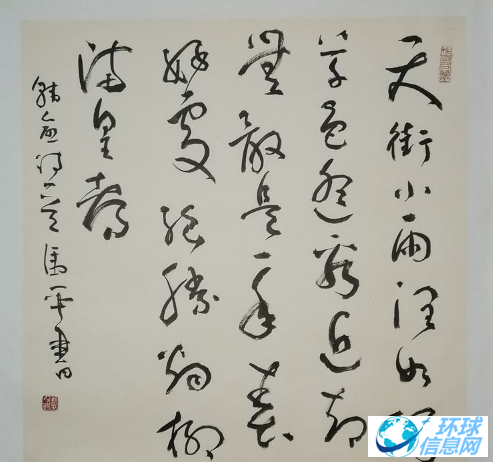 天街小雨润如酥
草色遥看近却
無最是一年春
好處绝勝烟柳
满皇都
韩愈诗一首 書
环球
信息网